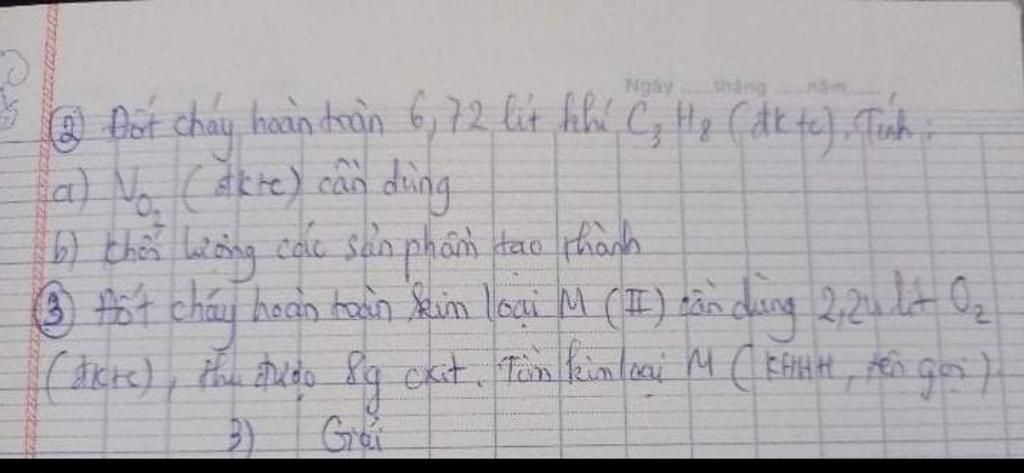 Ngày tháng năm
② Đốt cháy hoàn toàn 6,72 lít khí C₃H₈ (đktc). Tính:
a) V_O₂ (đktc) cần dùng
b) Khối lượng các sản phẩm tạo thành
③ Đốt cháy hoàn toàn kim loại M (II) cần dùng 2,24 lít O₂
(đktc), thu được 8g oxit. Tìm kim loại M (KHHH, tên gọi)
3) Giải